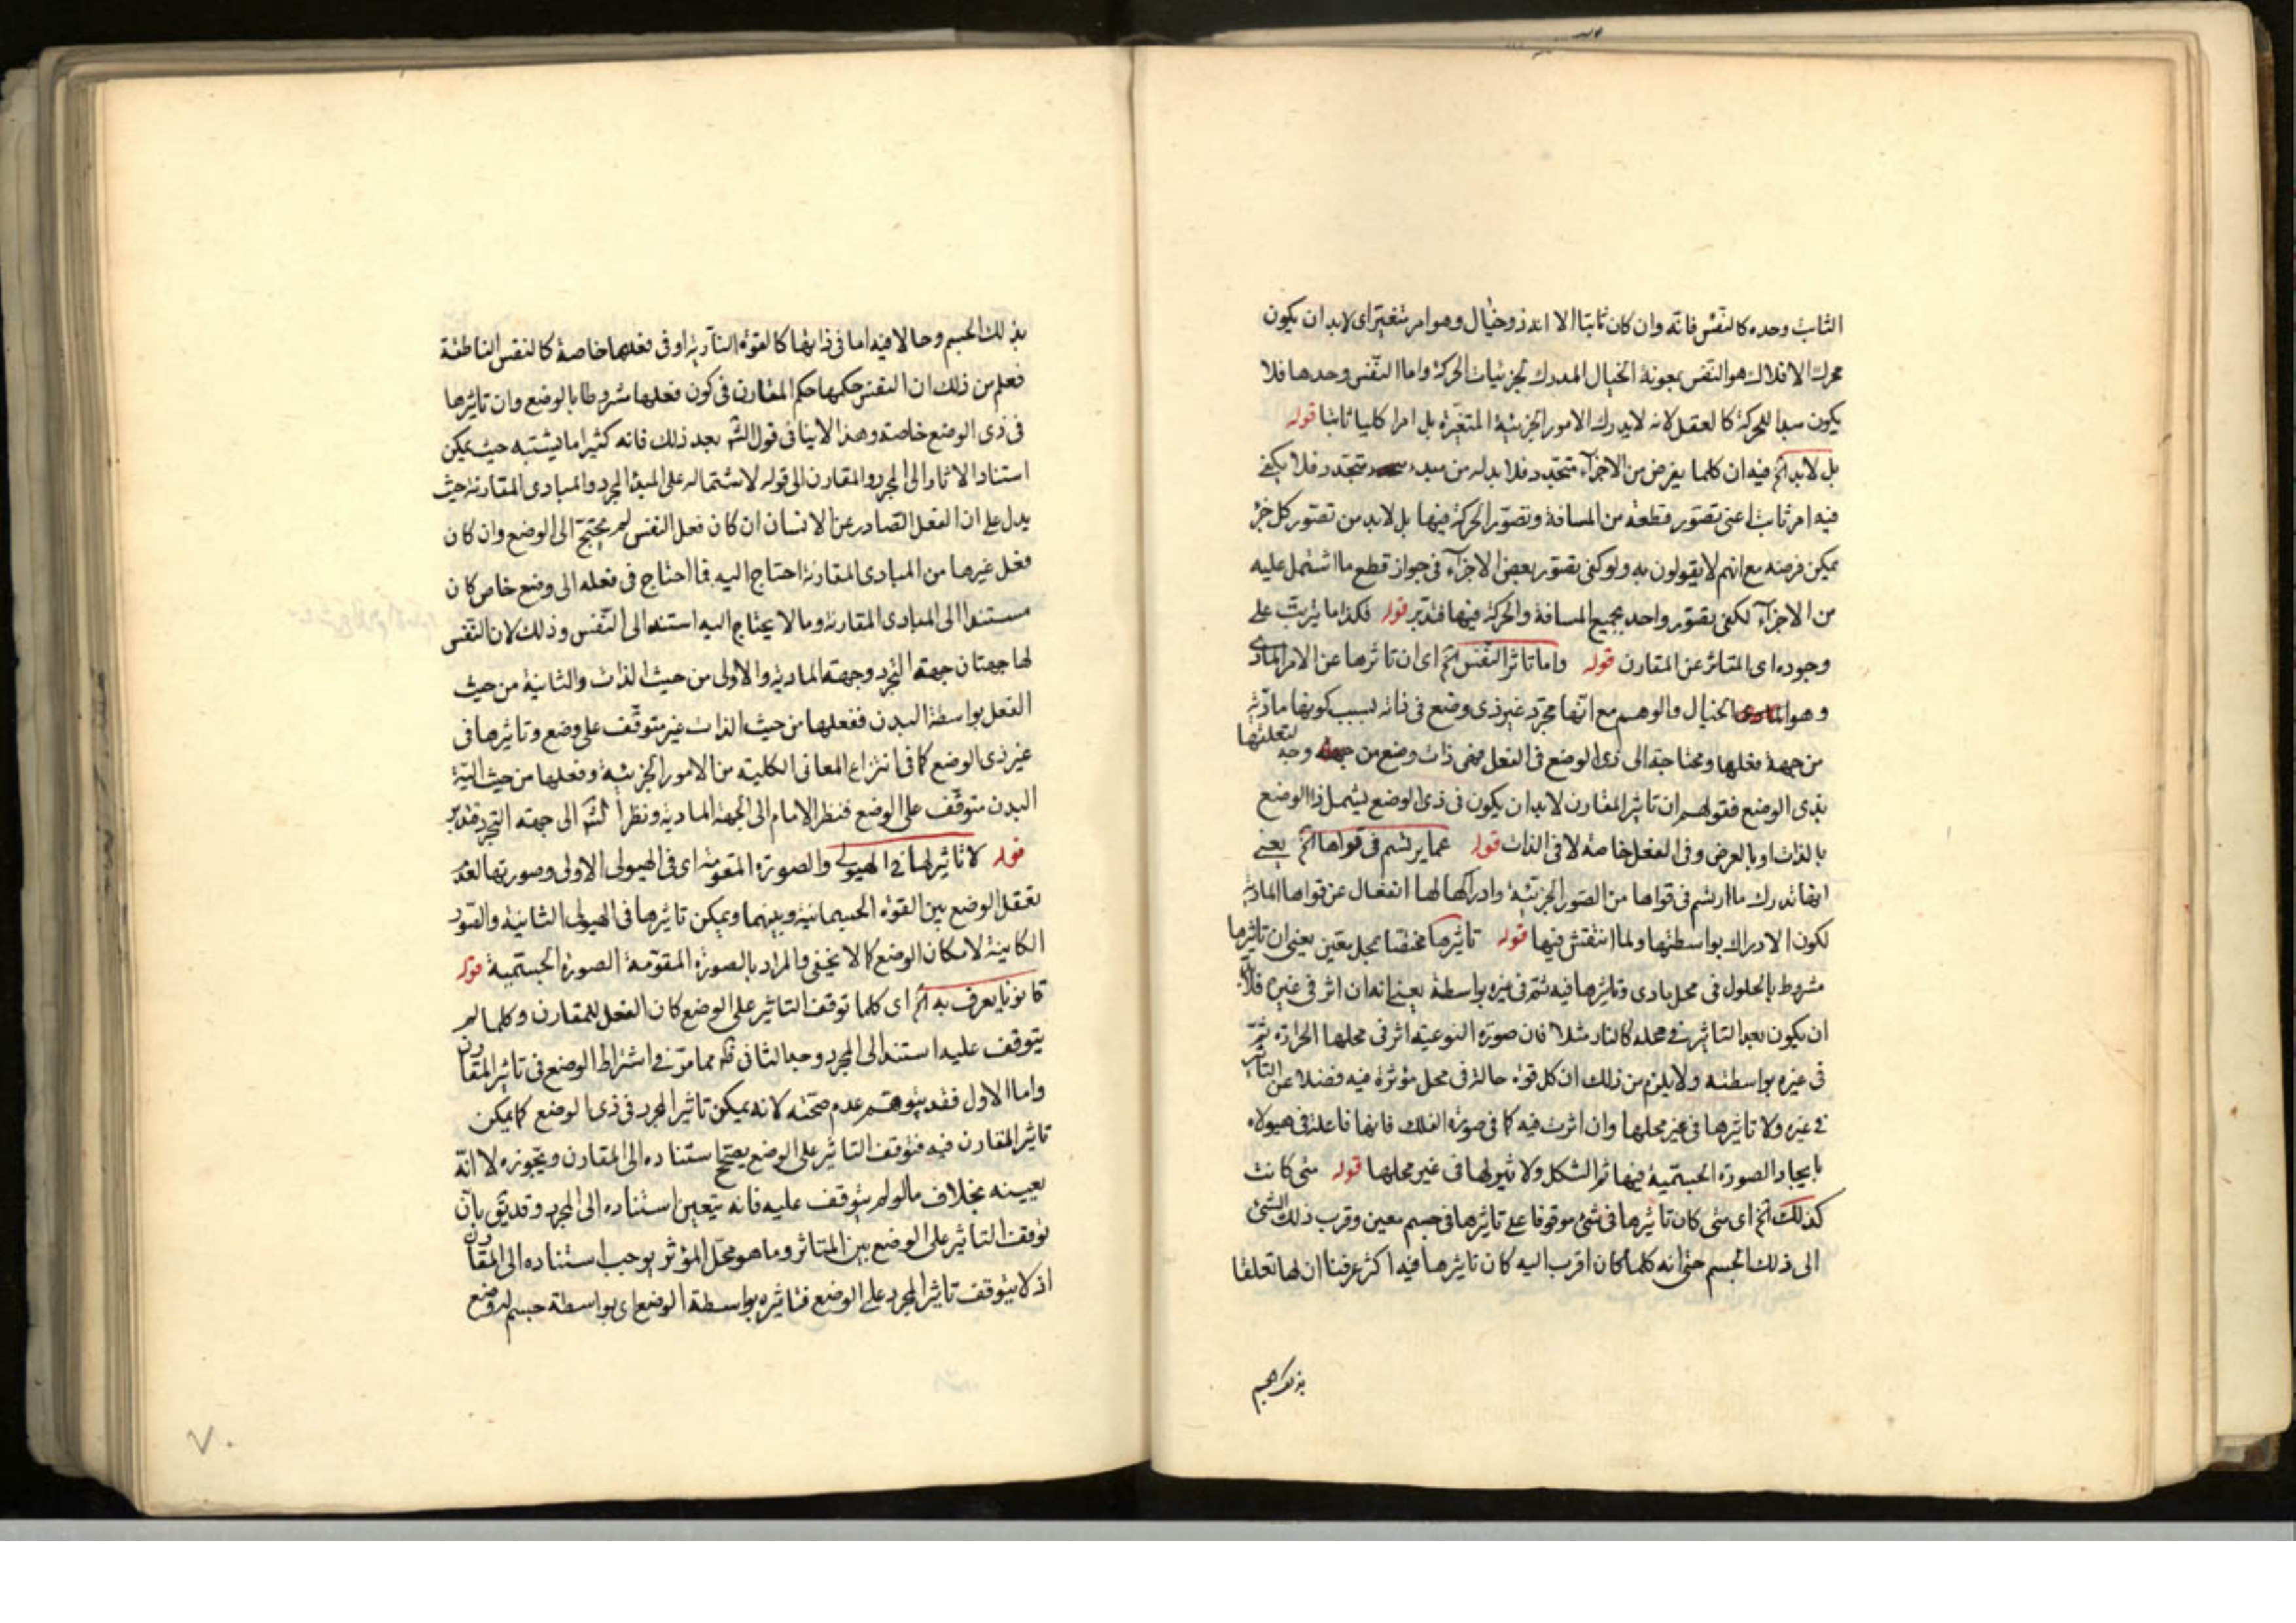 الثابت وحده كالنفس فانه وان كان ثابتا الا انه ذو خيال وهو امر متغير اى لابد ان يكون
محرك الافلاك هو النفس بمعونة الخيال المدرك لجزئيات الحركة واما النفس وحدها فلا
يكون سببا للحركة كالعقل لانه لا يدرك الامور الجزئية المتغيرة بل امرا كليا ثابتا قوله
بل لابد الخ فيه ان كلما يفرض من الاجزاء متجدد فلا بد له من مبدء متجدد فلا يكفى
فيه امر ثابت اعنى تصور قطعة من المسافة وتصور الحركة فيها بل لابد من تصور كل جزء
يمكن فرضه مع انهم لا يقولون به ولو كفى تصور بعض الاجزاء فى جواز قطع ما اشتمل عليه
من الاجزاء لكفى تصور واحد بجميع المسافة والحركة فيها فتدبر قوله فكذا ما يترتب على
وجوده اى المتاثر عن المقارن قوله واما تاثر النفس الخ اى ان تاثرها عن الامر المادى
وهو الخيال والوهم مع انها مجرد غير ذى وضع فى ذاته بسبب كونها مادية
من جهة فعلها ومحتاجة الى ذى الوضع فى الفعل فهى ذات وضع من جهة وجه لتعلقها
بذى الوضع فقولهم ان تاثير المقارن لابد ان يكون فى ذى الوضع ليشمل ذا الوضع
بالذات او بالعرض وفى الفعل خاصة لا فى الذات قوله عما يرتسم فى قواها الخ يعنى
انها تدرك ما ارتسم فى قواها من الصور الجزئية وادراكها لها انفعال عن قواها المادية
لكون الادراك بواسطتها ولما انتقش فيها قوله تاثيرها مختصا بمحل معين يعنى ان تاثيرها
مشروط بالحلول فى محل مادى وتاثيرها فيه ثم فى غيره بواسطة يعنى انه ان اثر فى غيره فلابد
ان يكون بعد التاثير فى محله كالنار مثلا فان صورة النوعية اثر فى محلها الحرارة ثم
فى غيره بواسطته ولا يلزم من ذلك ان كل قوة حالة فى محل مؤثرة فيه فضلا عن التاثير
فى غيره ولا تاثيرها فى غير محلها وان اثرت فيه كما فى صورة الفلك فانها فاعلة فى هيولاه
بايجاد الصورة الجسمية فيها ثم الشكل ولا تاثير لها فى غير محلها قوله متى كانت
كذلك الخ اى متى كان تاثيرها فى شئ موقوفا على تاثيرها فى جسم معين وقرب ذلك الشئ
الى ذلك الجسم حتى انه كلما كان اقرب اليه كان تاثيرها فيه اكثر عرفنا ان لها تعلقا
بذلك الجسم
بذلك الجسم وحالا فيه اما فى ذاتها كالقوة النارية او فى فعلها خاصة كالنفس الناطقة
فعلم من ذلك ان النفس حكمها حكم المقارن فى كون فعلها مشروطا بالوضع وان تاثيرها
فى ذى الوضع خاصة وهذا لا ينافى قول الش بعد ذلك فانه كثيرا ما يشتبه حيث يمكن
استناد الاثار الى المجرد والمقارن الى قوله لاشتماله على المبدء المجرد والمبادى المقارنة حيث
يدل على ان الفعل الصادر عن الانسان ان كان فعل النفس لم يحتج الى الوضع وان كان
فعل غيرها من المبادى المقارنة احتاج اليه فما احتاج فى فعله الى وضع خاص كان
مستندا الى المبادى المقارنة وما لا يحتاج اليه استند الى النفس وذلك لان النفس
لها جهتان جهة التجرد وجهة المادية والاولى من حيث الذات والثانية من حيث
الفعل بواسطة البدن ففعلها من حيث الذات غير متوقف على وضع وتاثيرها فى
غير ذى الوضع كما فى انتزاع المعانى الكلية من الامور الجزئية وفعلها من حيث
البدن متوقف على الوضع فنظر الامام الى الجهة المادية ونظر الش الى جهة التجرد فتدبر
قوله لا تاثير لها فى الهيولى والصورة المقومة اى فى الهيولى الاولى وصورتها لعدم
تعقل الوضع بين القوة الجسمانية وبينهما ويمكن تاثيرها فى الهيولى الثانية والصور
الكاينة لامكان الوضع كما لا يخفى والمراد بالصورة المقومة الصورة الجسمية قوله
قانونا يعرف به الخ اى كلما توقف التاثير على الوضع كان الفعل للمقارن وكلما لم
يتوقف عليه استند الى المجرد وجه الثانى ظ مما مر فى اشتراط الوضع فى تاثير المقارن
واما الاول فقد يتوهم عدم صحته لانه يمكن تاثير المجرد فى ذى الوضع كما يمكن
تاثير المقارن فيه فتوقف التاثير على الوضع يصحح استناده الى المقارن ويجوزه لا انه
يعينه بخلاف ما لو لم يتوقف عليه فانه يتعين استناده الى المجرد وقد يق بان
توقف التاثير على الوضع بين المتاثر وما هو محل المؤثر يوجب استناده الى المقارن
اذ لا يتوقف تاثير المجرد على الوضع فتاثيره بواسطة الوضع اى بواسطة جسم له وضع
٧٠